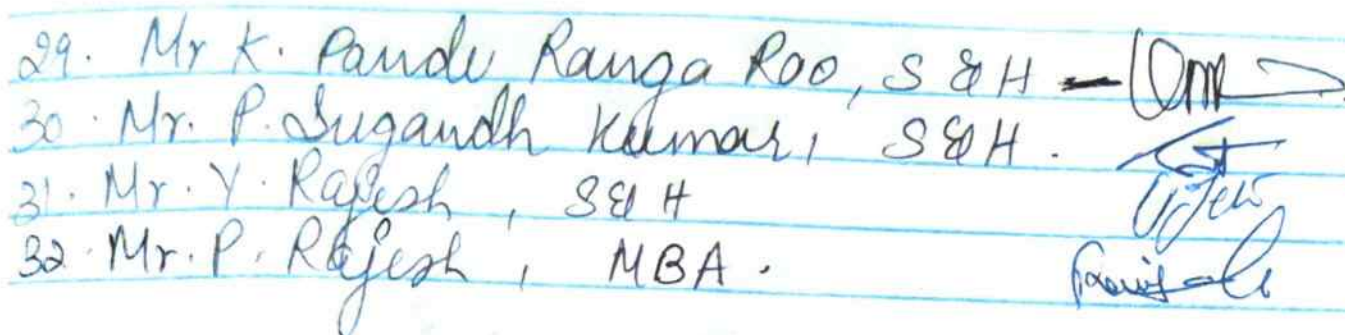 29. Mr K. Pandu Ranga Rao, S & H -
30. Mr. P. Sugandh Kumar, S & H.
31. Mr. Y. Rajesh, S & H
32. Mr. P. Rajesh, MBA.